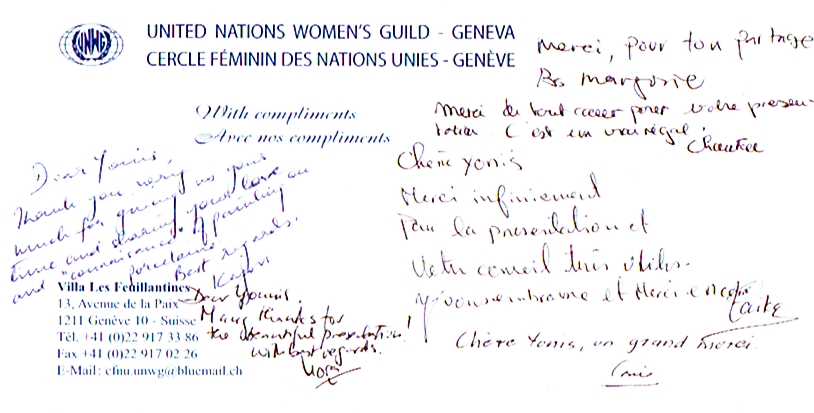 UNWG
UNITED NATIONS WOMEN'S GUILD - GENEVA
CERCLE FÉMININ DES NATIONS UNIES - GENÈVE
With compliments
Avec nos compliments
Merci, pour ton partage
Bs Margosie
Merci de tout coeur pour votre presen-
tation. C'est un vrai régal.
Chantal
Dear Younis,
Thank you very
much for giving us your
time and sharing your love
and "connaissance" of painting on
porcelaine.
Best regards.
Karen
Chère Yonis
Merci infiniement
Pour la presentation et
Votre conseil très utiles.
Je vous embrasse et Merci encore
Chère Yonis, un grand merci.
Dear Younis.
Many thanks for
the beautiful presentation!
With best regards.
Villa Les Feuillantines
13, Avenue de la Paix
1211 Genève 10 - Suisse
Tél. +41 (0)22 917 33 86
Fax +41 (0)22 917 02 26
E-Mail: cfnu.unwg@bluemail.ch